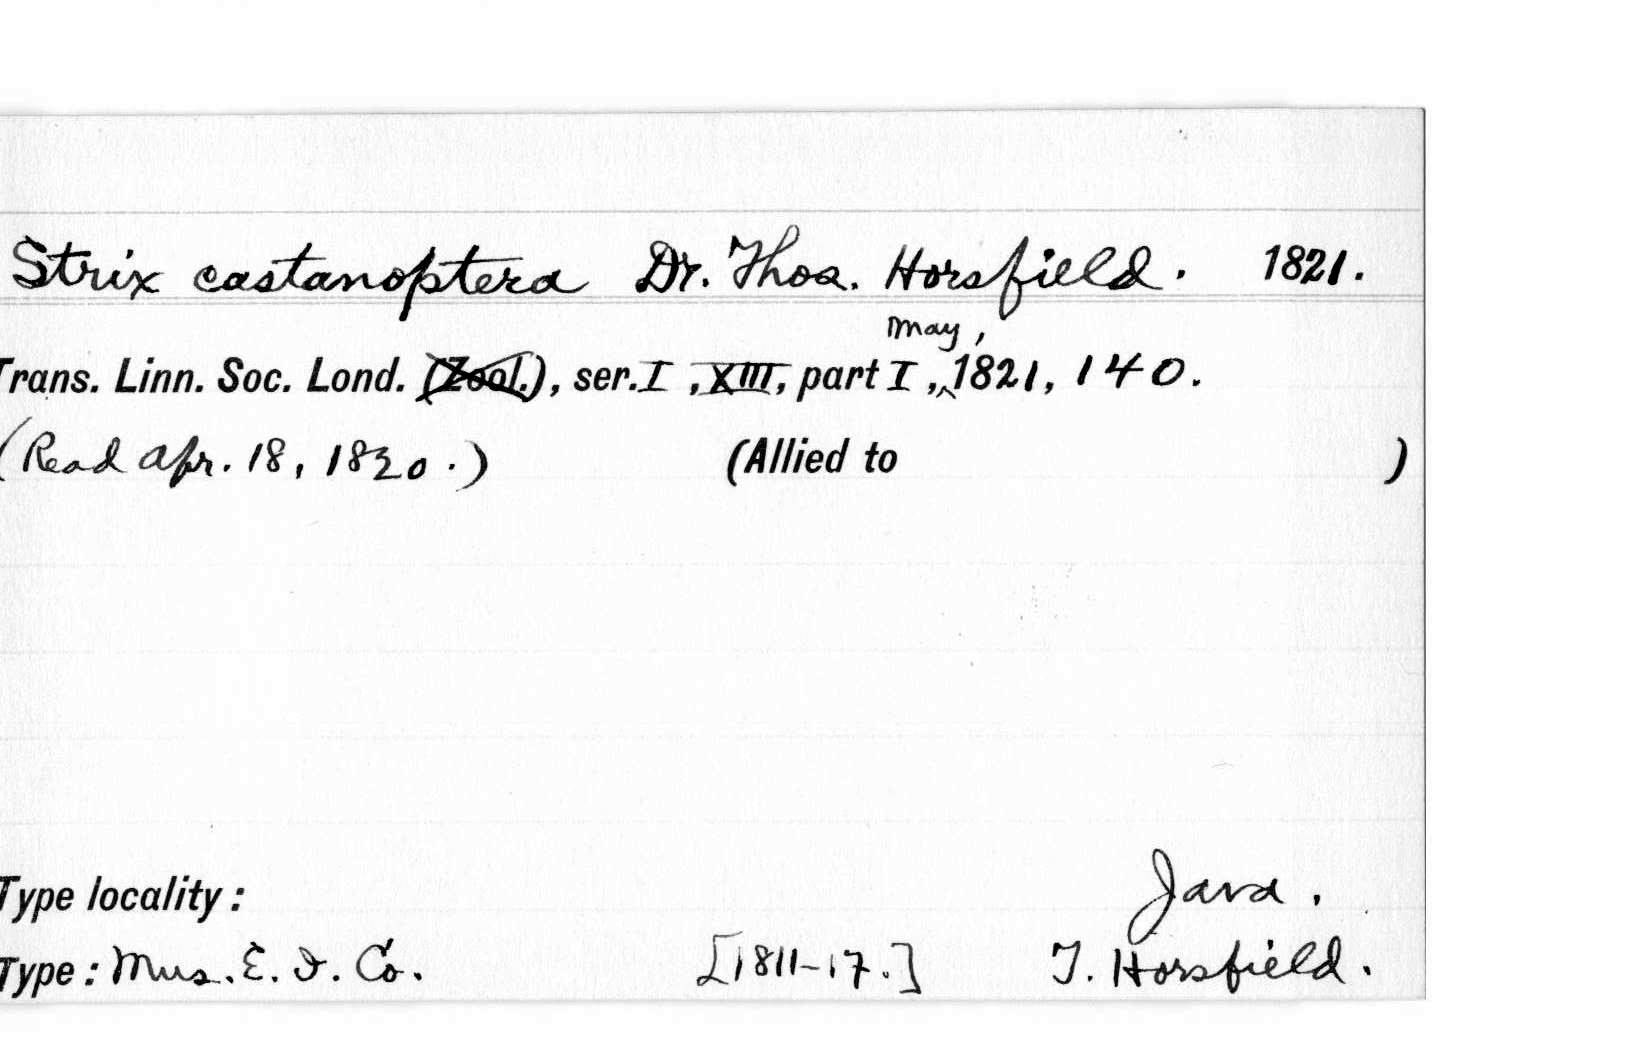 Strix castanoptera Dr. Thos. Horsfield. 1821.
May,
Trans. Linn. Soc. Lond. (Zool.), ser. I, XIII, part I, 1821, 140.
(Read Apr. 18, 1820.) (Allied to )
Type locality: Java.
Type: Mus. E. I. Co. [1811-17.] T. Horsfield.